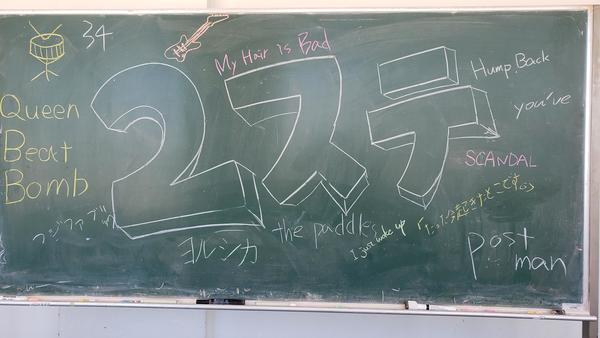 34
My Hair is Bad
Hump Back
Queen
Beat
Bomb
2ステ
you've
SCANDAL
フジファブリ
ヨルシカ
the paddles
I just woke up
「たった今起きたとこです。」
post
man